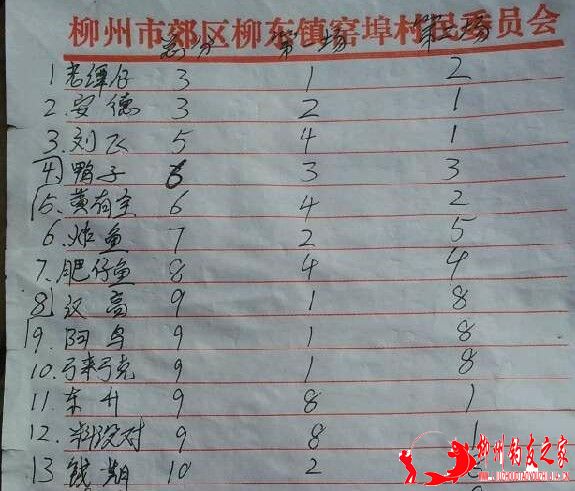 柳州市郊区柳东镇窑埠村民委员会
总分 第一场 第二场
1 老谭仔 3 1 2
2. 安德 3 2 1
3. 刘飞 5 4 1
4 鸭子 6 3 3
5. 黄有宝 6 4 2
6. 炸鱼 7 2 5
7. 肥仔鱼 8 4 4
8 汉高 9 1 8
9. 阿鸟 9 1 8
10. 弓来弓克 9 1 8
11. 东升 9 8 1
12. 对 9 8 1
13 钱期 10 2
柳州钓友之家